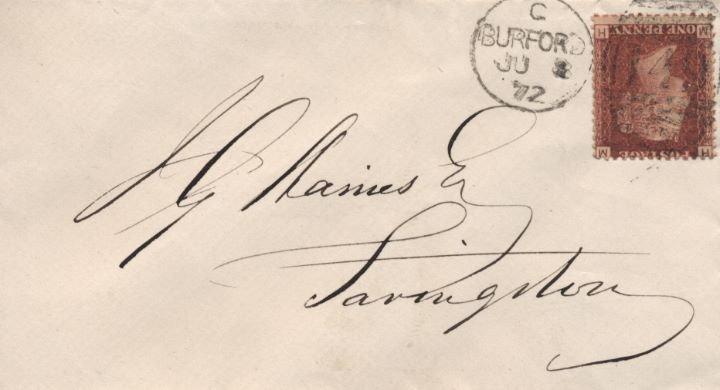 C
BURFORD
JU 8
72
H M
ONE PENNY
POSTAGE
M H
J G Haines Er
Faringdon